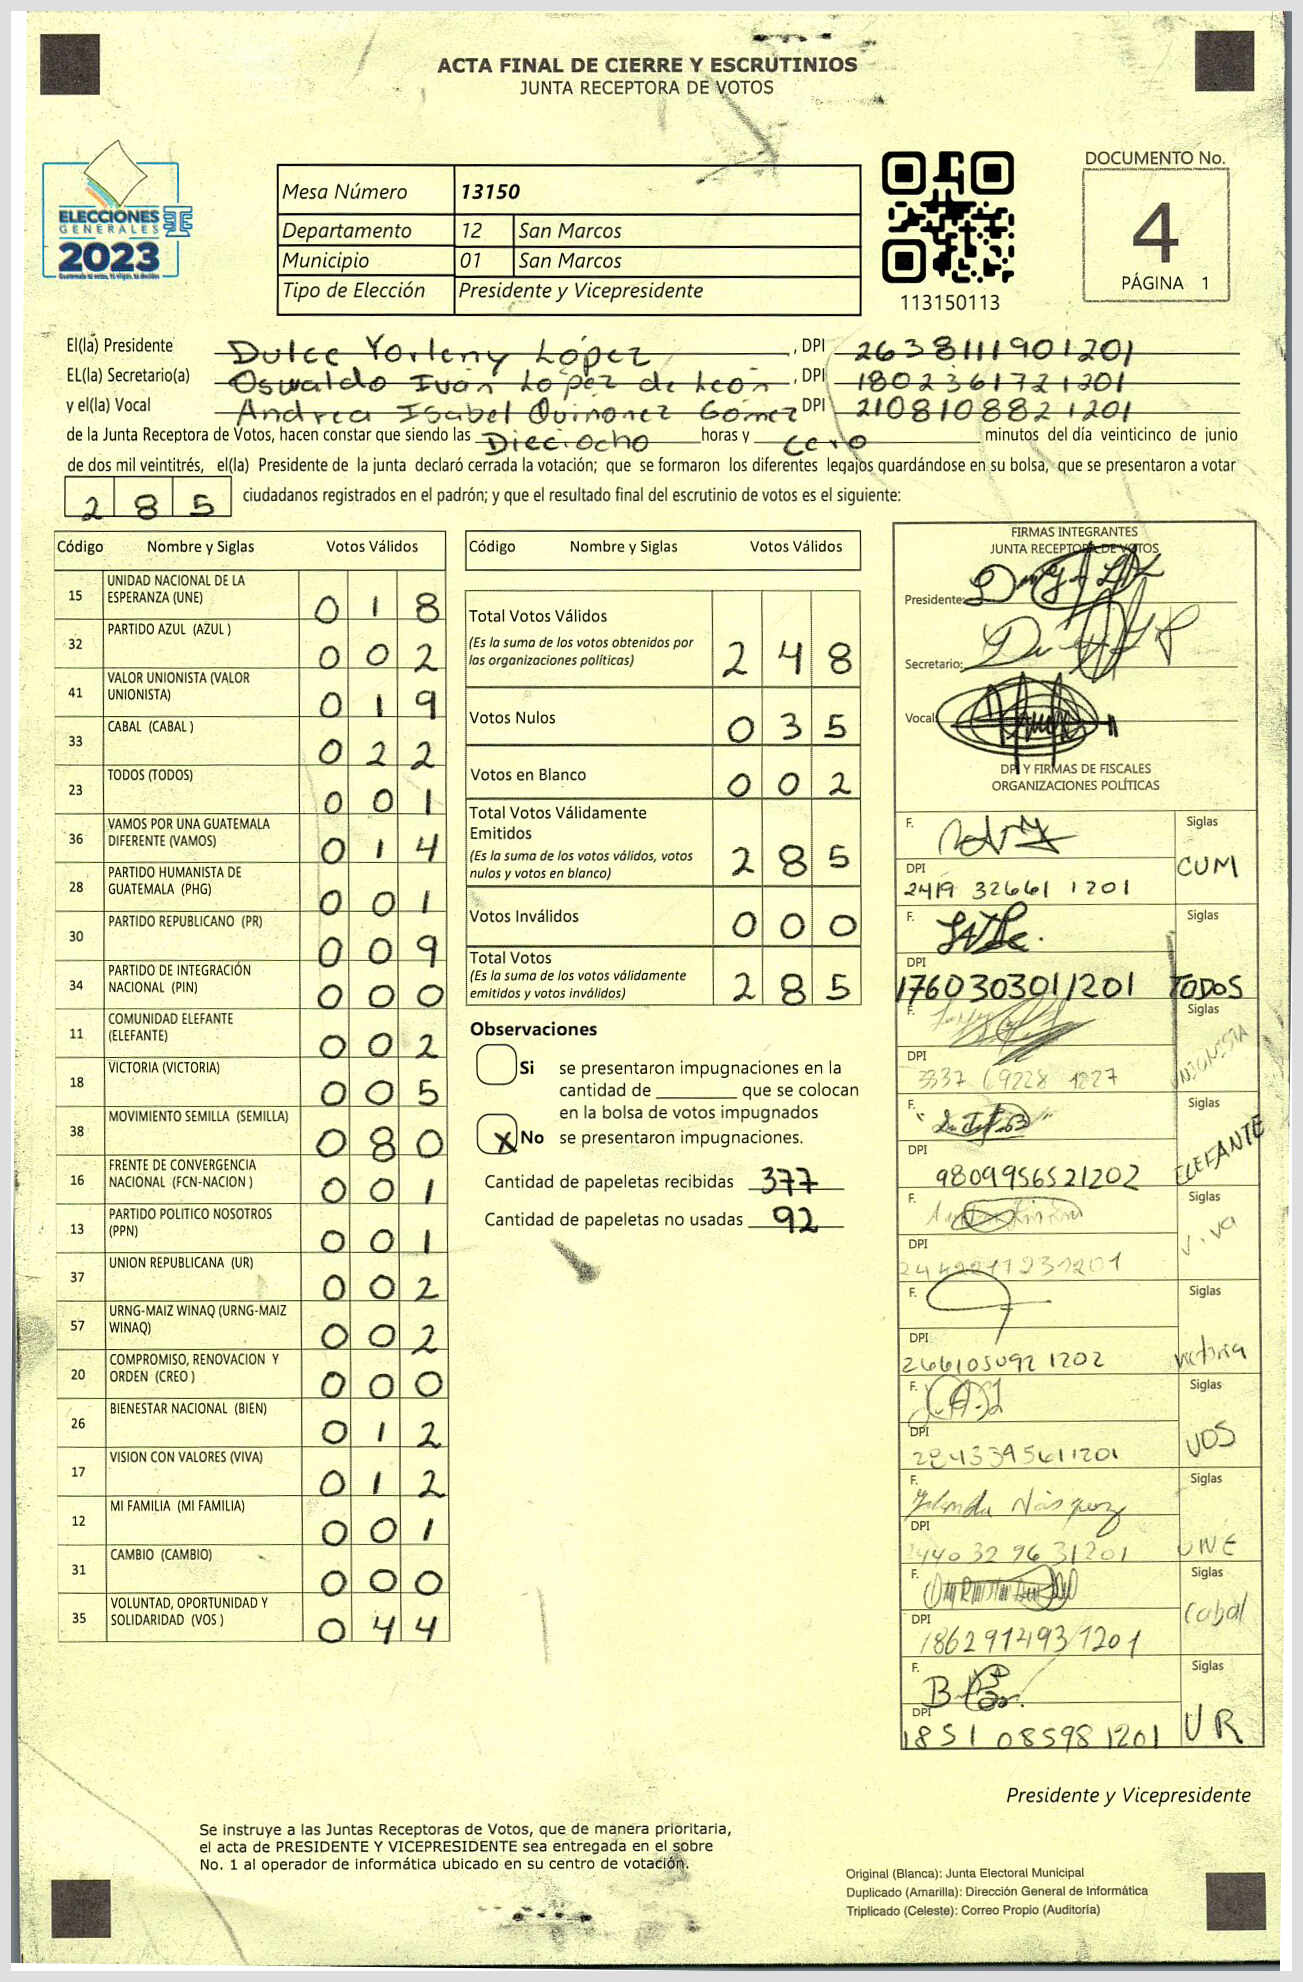 ACTA FINAL DE CIERRE Y ESCRUTINIOS
JUNTA RECEPTORA DE VOTOS
ELECCIONES
GENERALES
2023
Mesa Número 13150
Departamento 12 San Marcos
Municipio 01 San Marcos
Tipo de Elección Presidente y Vicepresidente
113150113
DOCUMENTO No.
4
PÁGINA 1
El(la) Presidente Dulce Yorleny López, DPI 2638111901201
EL(la) Secretario(a) Oswaldo Iván López de León, DPI 1802361721201
y el(la) Vocal Andrea Isabel Quinonez Gómez DPI 2108108821201
de la Junta Receptora de Votos, hacen constar que siendo las Dieciocho horas y cero minutos del día veinticinco de junio
de dos mil veintitrés, el(la) Presidente de la junta declaró cerrada la votación; que se formaron los diferentes legajos guardándose en su bolsa, que se presentaron a votar
285 ciudadanos registrados en el padrón; y que el resultado final del escrutinio de votos es el siguiente:
Código Nombre y Siglas Votos Válidos
15 UNIDAD NACIONAL DE LA ESPERANZA (UNE) 018
32 PARTIDO AZUL (AZUL ) 002
41 VALOR UNIONISTA (VALOR UNIONISTA) 019
33 CABAL (CABAL ) 022
23 TODOS (TODOS) 001
36 VAMOS POR UNA GUATEMALA DIFERENTE (VAMOS) 014
28 PARTIDO HUMANISTA DE GUATEMALA (PHG) 001
30 PARTIDO REPUBLICANO (PR) 009
34 PARTIDO DE INTEGRACIÓN NACIONAL (PIN) 000
11 COMUNIDAD ELEFANTE (ELEFANTE) 002
18 VICTORIA (VICTORIA) 005
38 MOVIMIENTO SEMILLA (SEMILLA) 080
16 FRENTE DE CONVERGENCIA NACIONAL (FCN-NACION ) 001
13 PARTIDO POLITICO NOSOTROS (PPN) 001
37 UNION REPUBLICANA (UR) 002
57 URNG-MAIZ WINAQ (URNG-MAIZ WINAQ) 002
20 COMPROMISO, RENOVACION Y ORDEN (CREO ) 000
26 BIENESTAR NACIONAL (BIEN) 012
17 VISION CON VALORES (VIVA) 012
12 MI FAMILIA (MI FAMILIA) 001
31 CAMBIO (CAMBIO) 000
35 VOLUNTAD, OPORTUNIDAD Y SOLIDARIDAD (VOS ) 044
Código Nombre y Siglas Votos Válidos
Total Votos Válidos 248
(Es la suma de los votos obtenidos por
las organizaciones políticas)
Votos Nulos 035
Votos en Blanco 002
Total Votos Válidamente
Emitidos 285
(Es la suma de los votos válidos, votos
nulos y votos en blanco)
Votos Inválidos 000
Total Votos 285
(Es la suma de los votos válidamente
emitidos y votos inválidos)
Observaciones
Si se presentaron impugnaciones en la
cantidad de ________ que se colocan
en la bolsa de votos impugnados
X No se presentaron impugnaciones.
Cantidad de papeletas recibidas 377
Cantidad de papeletas no usadas 92
FIRMAS INTEGRANTES
JUNTA RECEPTORA DE VOTOS
Presidente:
Secretario:
Vocal:
DPI Y FIRMAS DE FISCALES
ORGANIZACIONES POLÍTICAS
F. Siglas
DPI CUM
2419 32661 1201
F. Siglas
DPI
1760303011201 TODOS
F. Siglas
DPI UNIONISTA
F. Siglas
DPI ELEFANTE
9809956521202
F. Siglas
DPI Viva
F. Siglas
DPI Victoria
F. Siglas
DPI VOS
F. Yolanda Siglas
DPI UNE
F. Siglas
Cabal
DPI
1862914931201
F. Siglas
DPI UR
1851 08598 1201
Presidente y Vicepresidente
Se instruye a las Juntas Receptoras de Votos, que de manera prioritaria,
el acta de PRESIDENTE Y VICEPRESIDENTE sea entregada en el sobre
No. 1 al operador de informática ubicado en su centro de votación.
Original (Blanca): Junta Electoral Municipal
Duplicado (Amarilla): Dirección General de Informática
Triplicado (Celeste): Correo Propio (Auditoría)